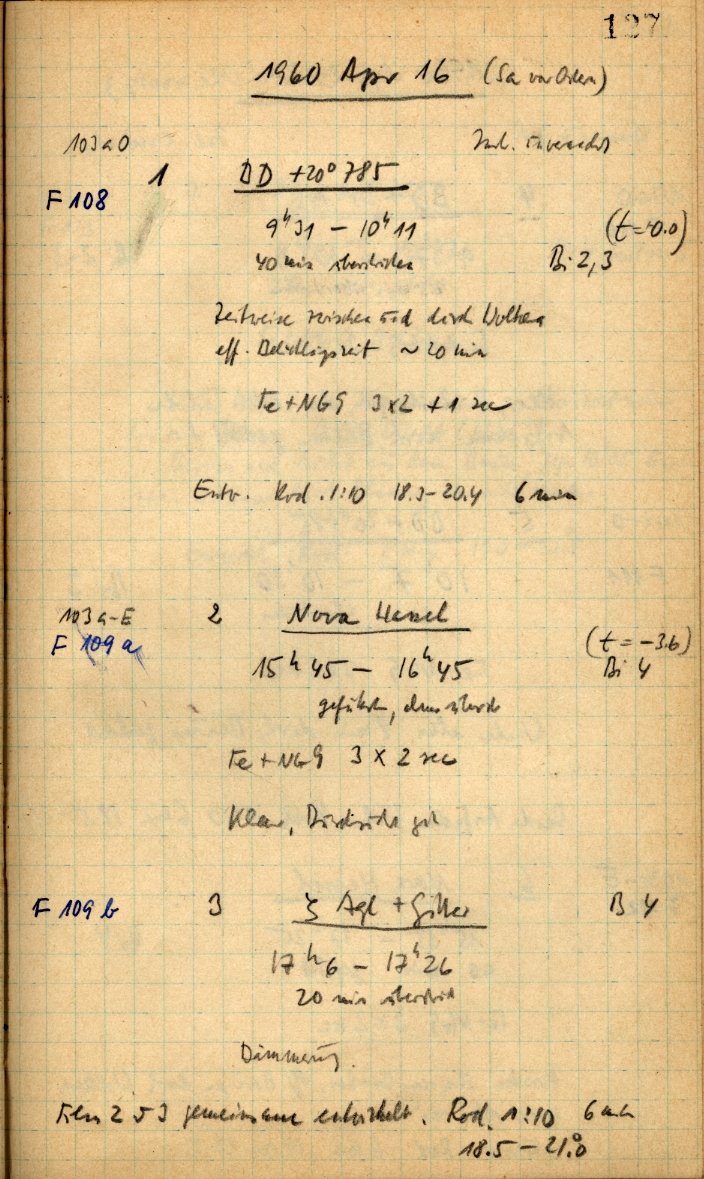 127
1960 Apr 16 (Sa vor Ostern)
103a0
1 BD +20° 785
F 108
9ʰ31 – 10ʰ11 (t = 0.0)
40 min überstrichen Bi 2,3
Zeitweise zwischen und durch Wolken
eff. Belichtungszeit ~20 min
Fe+NG9 3x2 +1 sec
Entw. Rod. 1:10 18.3–20.4 6 min
103a-E 2 Nova Hassel
F 109a (t = –3.6)
15ʰ45 – 16ʰ45 Bi 4
geführt, ohne überstr
Fe+NG9 3 x 2 sec
Klar, Durchsicht gut
F 109b 3 ζ Aql + Gitter B 4
17ʰ6 – 17ʰ26
20 min überstr
Dämmerung.
Film 2 u 3 gemeinsam entwickelt. Rod. 1:10 6 min
18.5 – 21.0